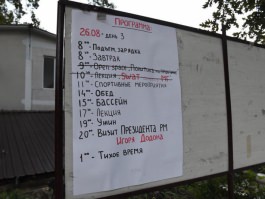 ПРОГРАММА
26.08 - ДЕНЬ 3
8⁰⁰ - Подъем, зарядка
8³⁰ - Завтрак
9⁰⁰ - Open space
10⁰⁰ - Лекция SWOT
11⁰⁰ - Спортивные мероприятия
14⁰⁰ - ОБЕД
15⁰⁰ - БАССЕЙН
17⁰⁰ - Лекция
19⁰⁰ - Ужин
20⁰⁰ - Визит ПРЕЗИДЕНТА РМ
ИГОРЯ ДОДОНА
1⁰⁰ - Тихое время